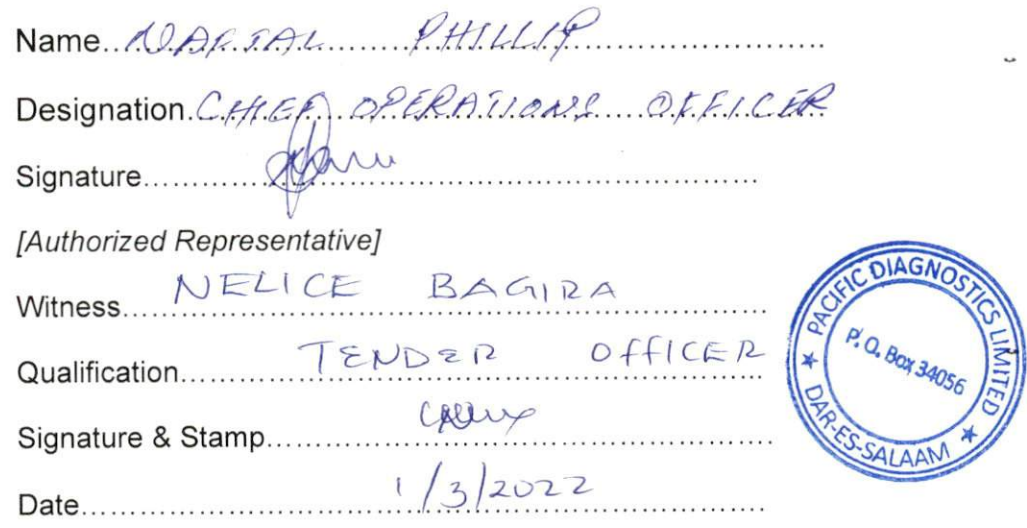 Name...NAFTAL PHILLIP
Designation.CHIEF OPERATIONS OFFICER
Signature
[Authorized Representative]
Witness NELICE BAGIRA
Qualification TENDER OFFICER
Signature & Stamp
Date 1/3/2022
PACIFIC DIAGNOSTICS LIMITED
P. O. Box 34056
★ DAR-ES-SALAAM ★